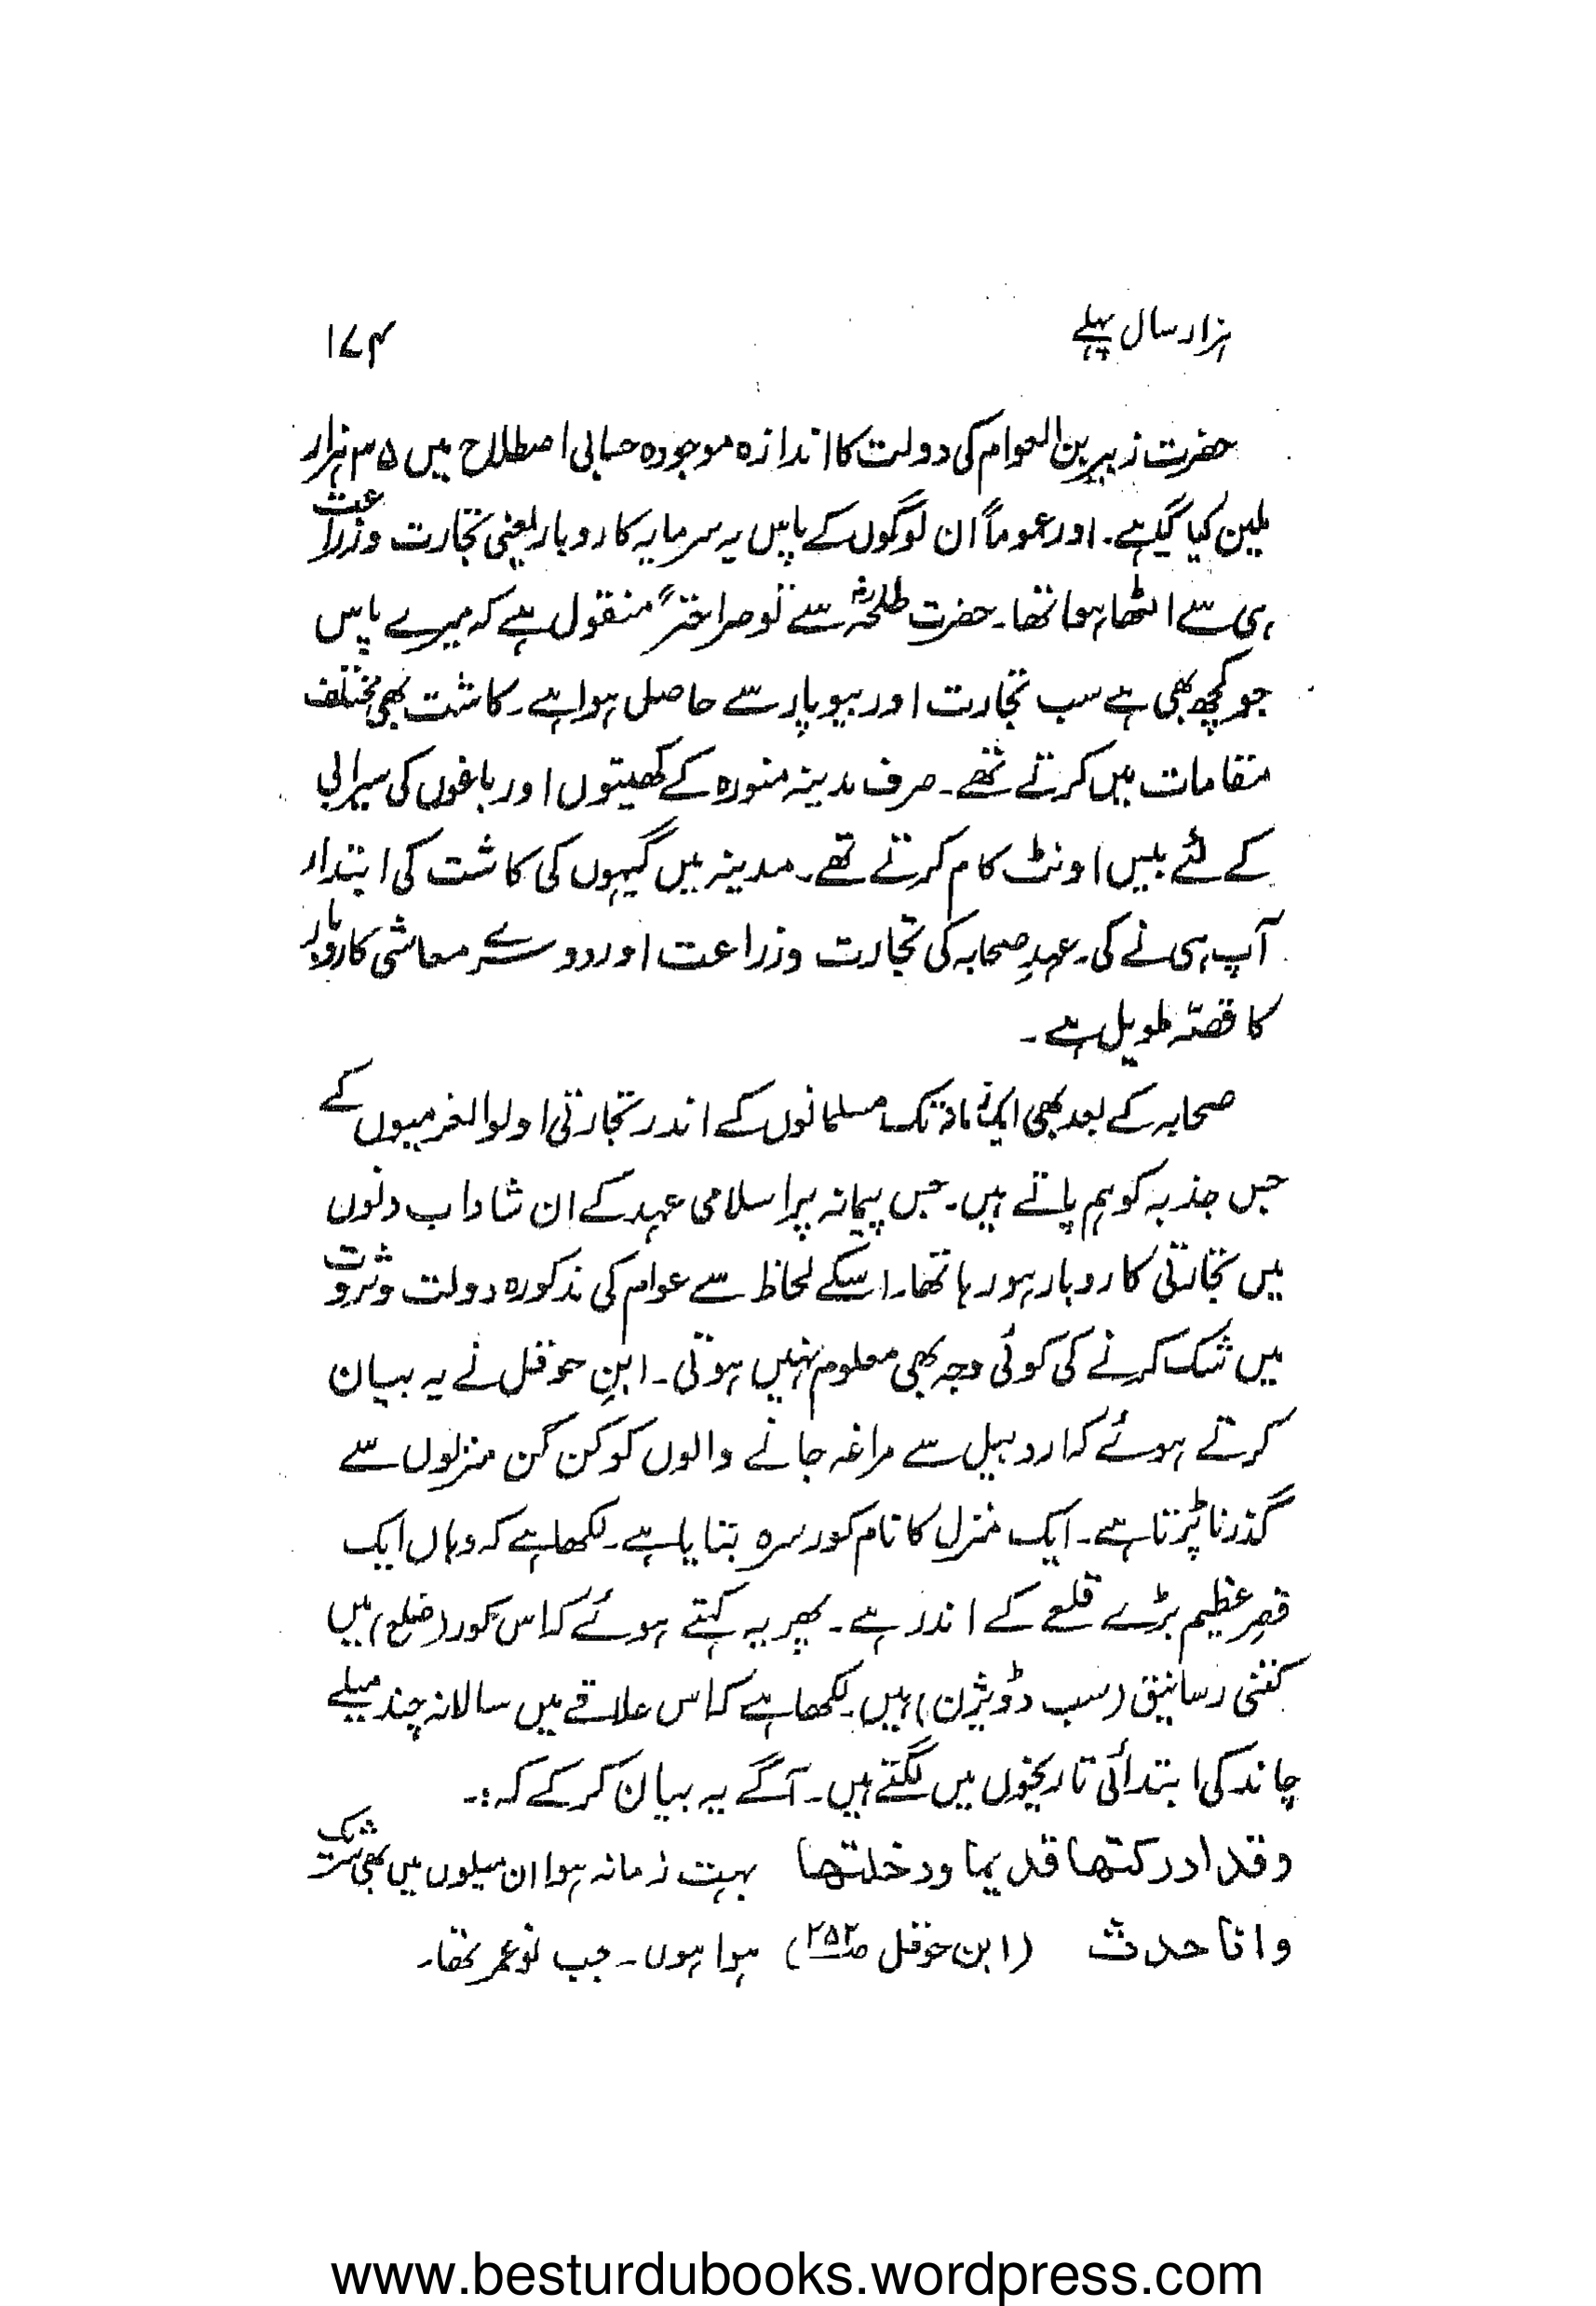 ہزار سال پہلے
۱۷۴
حضرت زبیر بن العوام کی دولت کا اندازہ موجودہ حسابی اصطلاح میں ۳۵ ہزار
ملین کیا گیا ہے۔ اور عموماً ان لوگوں کے پاس یہ سرمایہ کاروبار یعنی تجارت وزراعت
ہی سے اٹھا ہوا تھا۔ حضرت طلحہؓ سے تو صراحتہً منقول ہے کہ میرے پاس
جو کچھ بھی ہے سب تجارت اور بیوپار سے حاصل ہوا ہے۔ کاشت بھی مختلف
مقامات میں کرتے تھے۔ صرف مدینہ منورہ کے کھیتوں اور باغوں کی سیرابی
کے لئے بیس اونٹ کام کرتے تھے۔ مدینہ میں گیہوں کی کاشت کی ابتداء
آپ ہی نے کی۔ عہدِ صحابہ کی تجارت وزراعت اور دوسرے معاشی کاروبار
کا قصّہ طویل ہے۔
صحابہ کے بعد بھی ایک زمانہ تک مسلمانوں کے اندر تجارتی اولوالعزمیوں کے
جس جذبہ کو ہم پاتے ہیں۔ جس پیمانہ پر اسلامی عہد کے ان شاداب دنوں
میں تجارتی کاروبار ہو رہا تھا۔ اسکے لحاظ سے عوام کی مذکورہ دولت وثروت
میں شک کرنے کی کوئی وجہ بھی معلوم نہیں ہوتی۔ ابنِ حوقل نے یہ بیان
کرتے ہوئے کہ اردبیل سے مراغہ جانے والوں کو کن کن منزلوں سے
گذرنا پڑتا ہے۔ ایک منزل کا نام کورسرہ بتایا ہے۔ لکھا ہے کہ وہاں ایک
قصرِ عظیم بڑے قلعے کے اندر ہے۔ پھر یہ کہتے ہوئے کہ اس کور (ضلع) میں
کتنی رساتیق (سب ڈویژن) ہیں۔ لکھا ہے کہ اس علاقے میں سالانہ چند میلے
چاند کی ابتدائی تاریخوں میں لگتے ہیں۔ آگے یہ بیان کر کے کہ:۔
وقد ادرکتھا قدیما ودخلتھا بہت زمانہ ہوا ان میلوں میں بھی شریک
وانا حدث (ابن حوقل صـ ۲۵۲) ہوا ہوں۔ جب نو عمر تھا۔
www.besturdubooks.wordpress.com